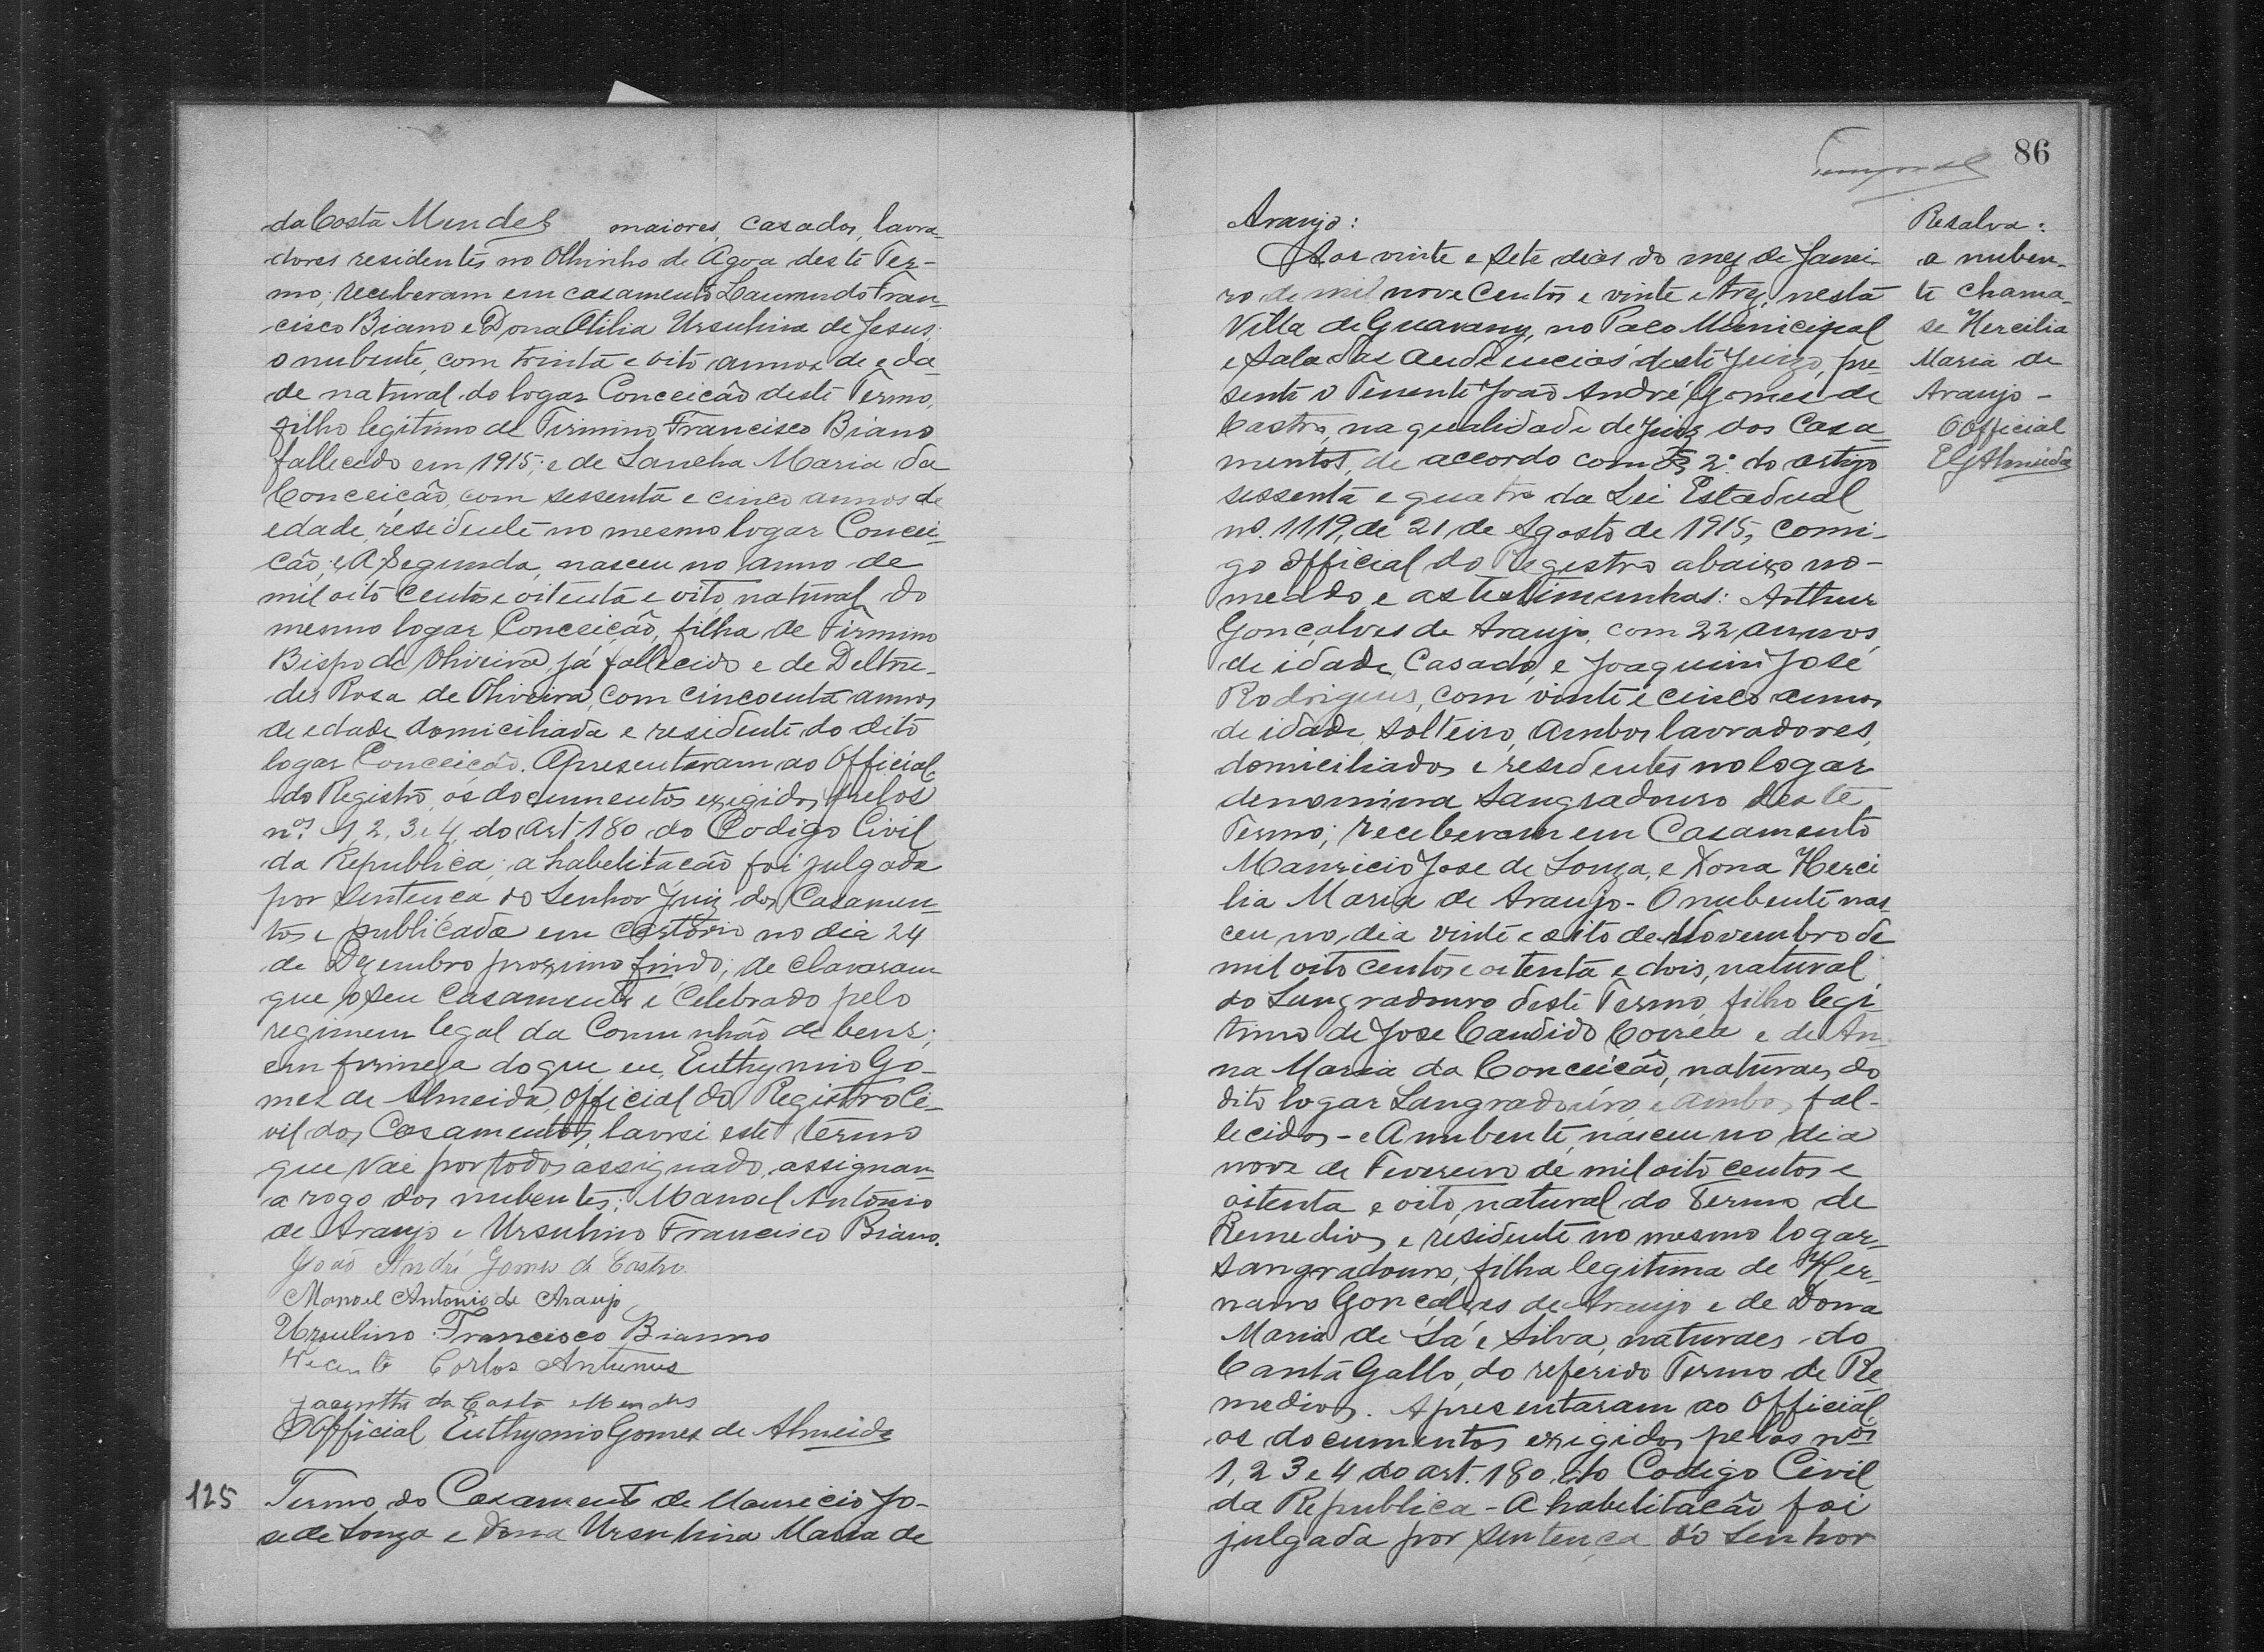 da Costa Mendes maiores, casados, lavra-
dores residentes no Olhinho de Agoa deste Ter-
mo; receberam em casamento Laurindo Fran-
cisco Biano e Dona Otilia Ursulina de Jesus;
o nubente, com trinta e oito annos de eda-
de natural do logar Conceicão deste Termo,
filho legitimo de Firmino Francisco Biano
fallecido em 1915; e de Sancha Maria da
Conceicão, com sessenta e cinco annos de
edade, residente no mesmo logar Concei-
cão; e A segunda, nasceu no anno de
mil oito centos e oitenta e oito, natural do
mesmo logar Conceicão, filha de Firmino
Bispo de Oliveira, já fallecido e de Deltru-
des Rosa de Oliveira, com cincoenta annos
de edade domiciliada e residente do dito
logar Conceicão. Apresentaram ao Official
do Registro, os documentos exigidos pelos
nos. 1, 2, 3 e 4, do Art 180 do Codigo Civil
da Republica; a habelitacão foi julgada
por sentenca do Senhor Juiz dos Casamen-
tos e publicada em Cartorio no dia 24
de Dezembro proximo findo; de clararam
que o seu casamento é celebrado pelo
regimem legal da Comunhão de bens;
em firmeza do que eu, Euthymio Go-
mes de Almeida, Official do Registro Ci-
vil dos Casamentos, lavrei este termo
que vai por todos assignado, assignan-
a rogo dos nubentes: Manoel Antonio
de Araujo e Ursulino Francisco Biano.
João André Gomes de Castro
Manoel Antonio de Araujo
Ursulino Francisco Bianno
Vicente Carlos Antunes
Jacintho da Costa Mendes
O Official Euthymio Gomes de Almeida
125 Termo do Casamento de Mauricio Jo-
se de Souza e Dona Ursulina Maria de
86
Araujo:
Aos vinte e sete dias do mez de Janei-
ro de mil nove Centos e vinte e trez, nesta
Villa de Guarany, no Paco Municipal
e sala das audiencias deste Juizo, pre-
sente o Tenente João André Gomes de
Castro, na qualidade de Juiz dos Casa-
mentos, de accordo com o § 2º do artigo
sessenta e quatro da Lei Estadual
nº. 1119, de 21 de Agosto de 1915, comi-
go official do Registro abaixo no-
meado e as testimunhas: Arthur
Gonçalves de Araujo, com 22, annos
de idade, Casado, e Joaquim José
Rodrigues, com vinte e cinco annos
de idade, solteiro, ambos lavradores,
domiciliados e residentes no logar
denomina Sangradouro deste
Termo; receberam em Casamento
Mauricio Jose de Souza, e Dona Herci
lia Maria de Araujo - O nubente nas-
ceu no dia vinte e oito de Novembro de
mil oito centos e oitenta e dois, natural
do Sangradouro deste Termo, filho legi-
timo de Jose Candido Corrêa e de An-
na Maria da Conceicão, naturaes do
dito logar Sangradouro e ambos fal-
lecidos - e A nubente, nasceu no dia
nove de Fevereiro de mil oito centos e
oitenta e oito, natural do Termo de
Remedios e residente no mesmo logar-
Sangradouro, filha legitima de Her-
nano Gonçalves de Araujo e de Dona
Maria de Sá e Silva, naturaes do
Canta Gallo, do referido Termo de Re
medios. Apresentaram ao Official
os documentos exigidos pelos nos
1, 2 3 e 4 do art. 180 do Codigo Civil
da Republica - A habelitacão foi
julgada por sentença do Senhor
Resalva:
a nuben-
te chama-
se Hercilia
Maria de
Araujo -
O Official
EGAlmeida